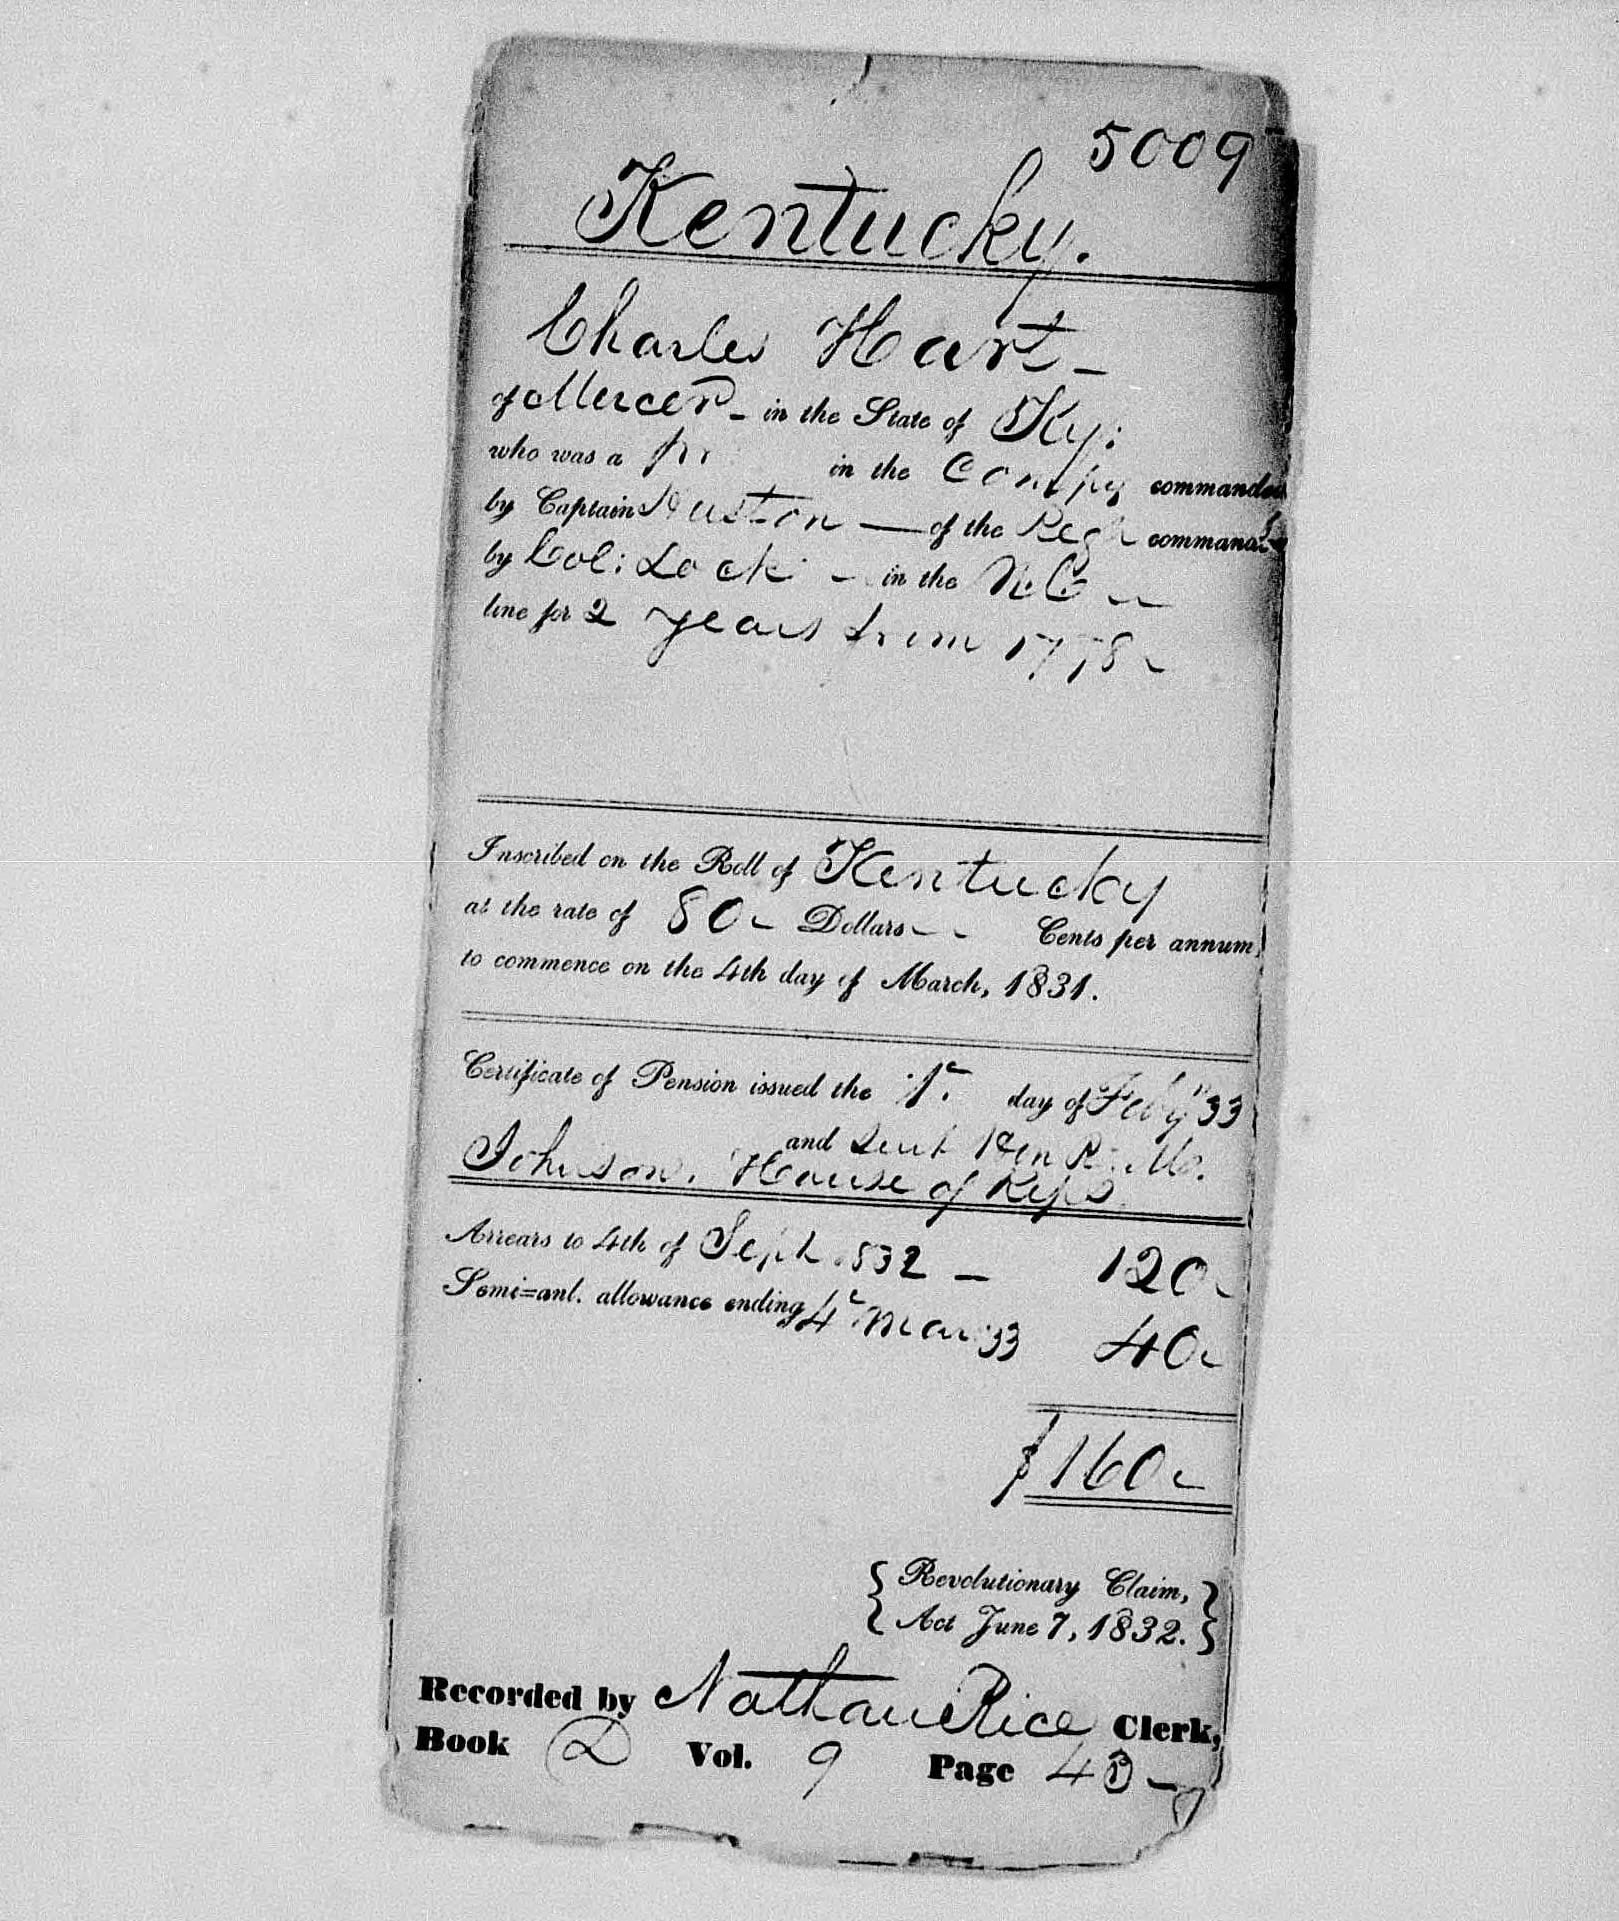 5009
Kentucky.
Charles Hart -
of Mercer - in the State of Ky:
who was a pri in the Compy commanded
by Captain Huston — of the Regt commanded
by Col: Lock - in the N.C.
line for 2 years from 1778
Inscribed on the Roll of Kentucky
at the rate of 80 Dollars - - Cents per annum,
to commence on the 4th day of March, 1831.
Certificate of Pension issued the 1st day of Feby 33
and sent Hon R. M.
Johnson, House of Reps
Arrears to 4th of Sept 1832 - 120
Semi=anl. allowance ending 4 Mar 33 40
$160
Revolutionary Claim,
Act June 7, 1832.
Recorded by Nathan Rice Clerk,
Book D Vol. 9 Page